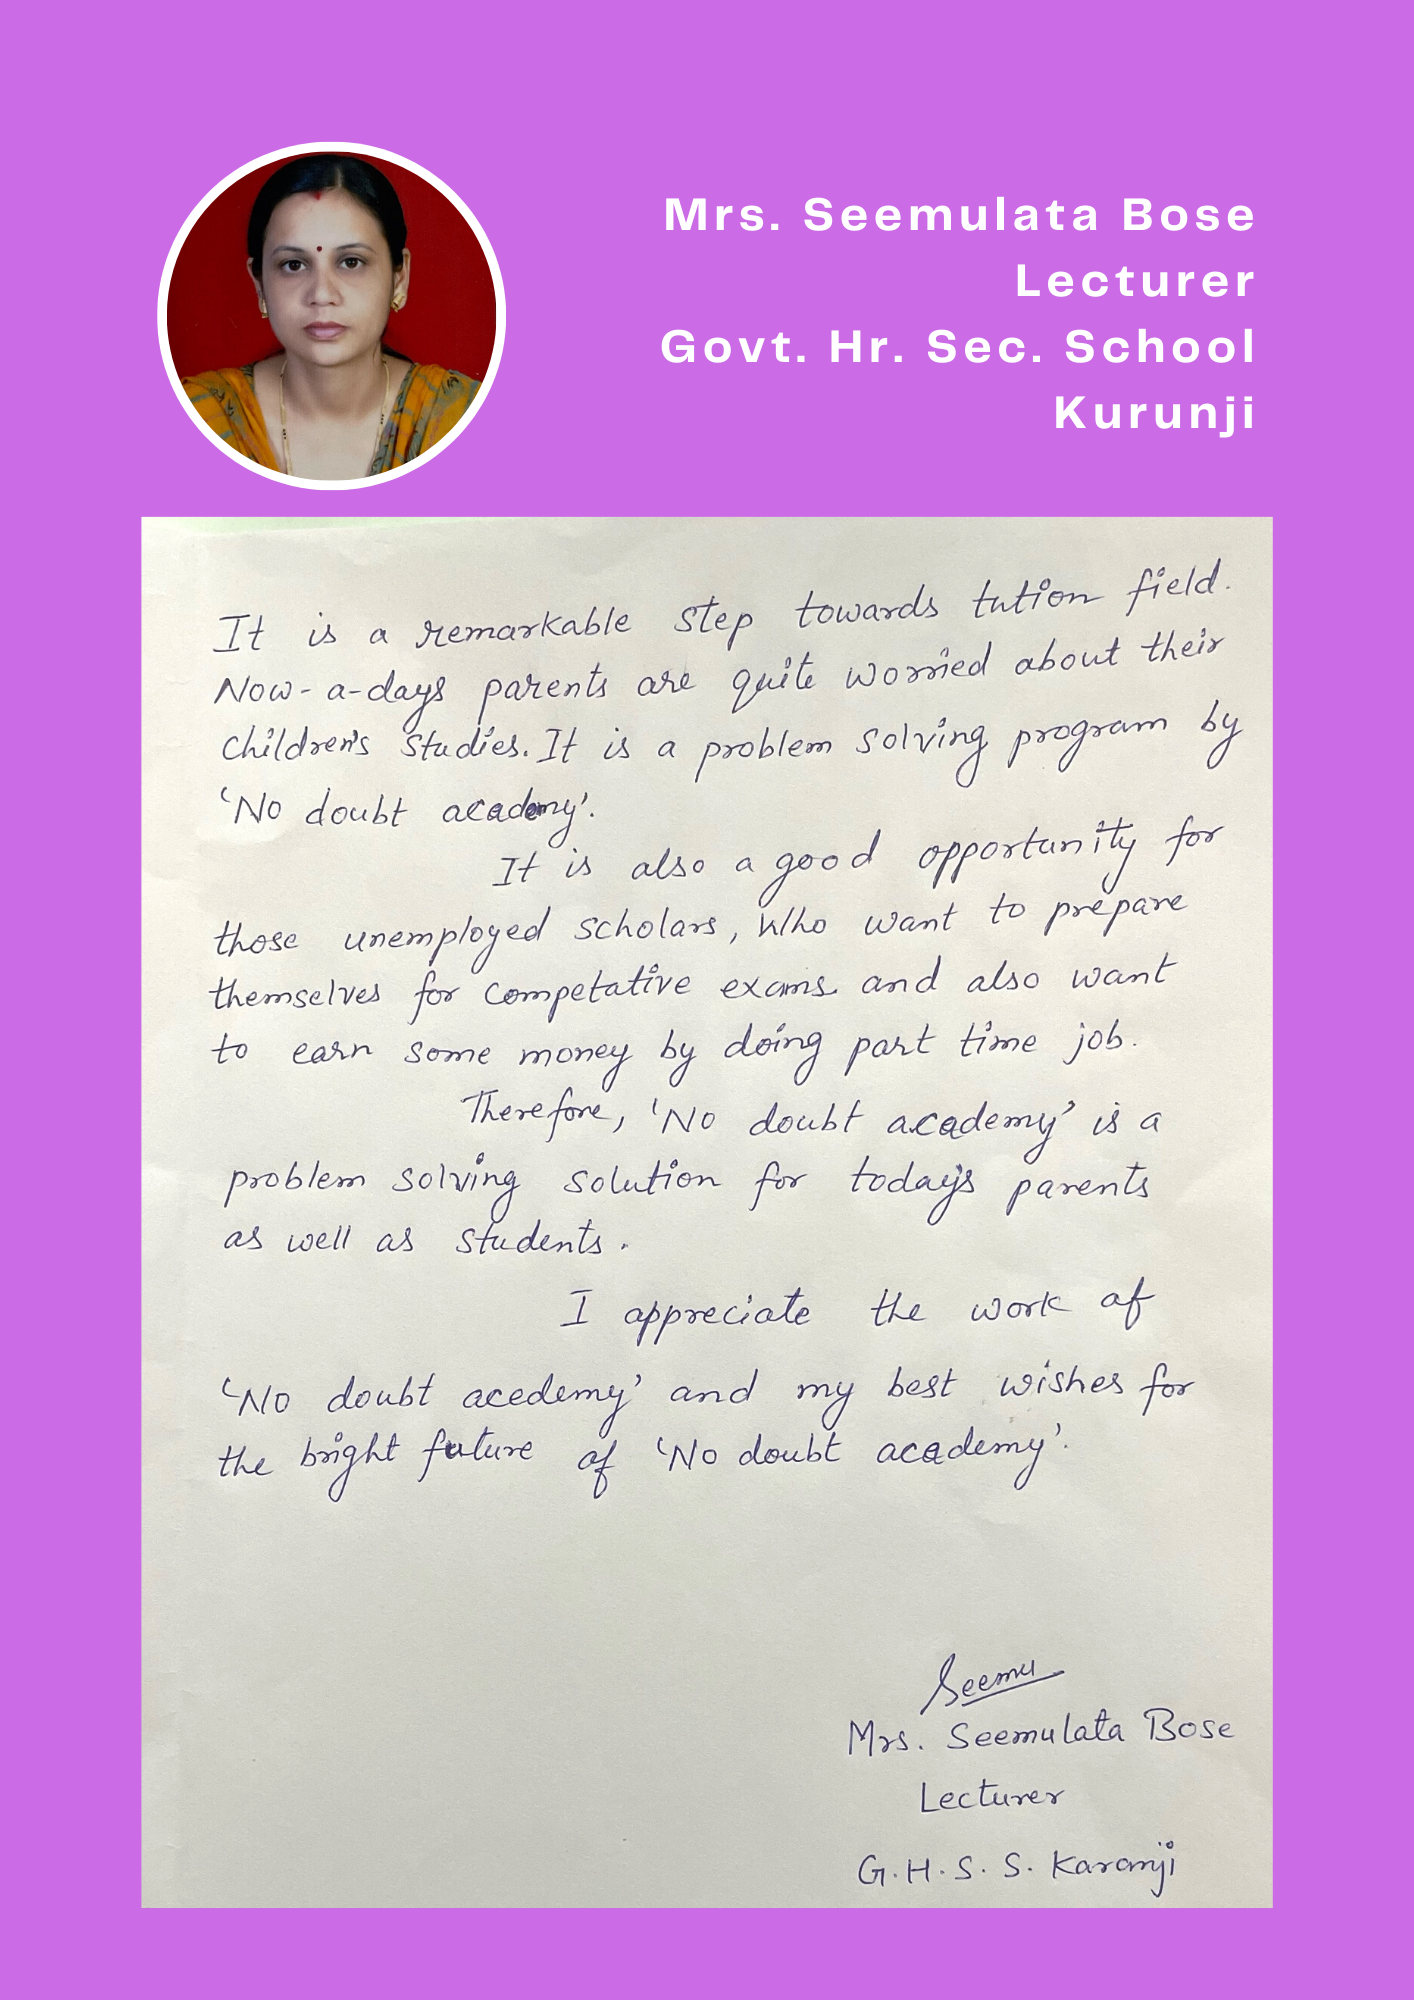 Mrs. Seemulata Bose
Lecturer
Govt. Hr. Sec. School
Kurunji
It is a remarkable step towards tution field.
Now-a-days parents are quite worried about their
children's studies. It is a problem solving program by
'No doubt academy'.
It is also a good opportunity for
those unemployed scholars, who want to prepare
themselves for competative exams and also want
to earn some money by doing part time job.
Therefore, 'No doubt academy' is a
problem solving solution for today's parents
as well as students.
I appreciate the work of
'No doubt acedemy' and my best wishes for
the bright future of 'No doubt academy'.
Seemu
Mrs. Seemulata Bose
Lecturer
G.H.S.S. Karanji